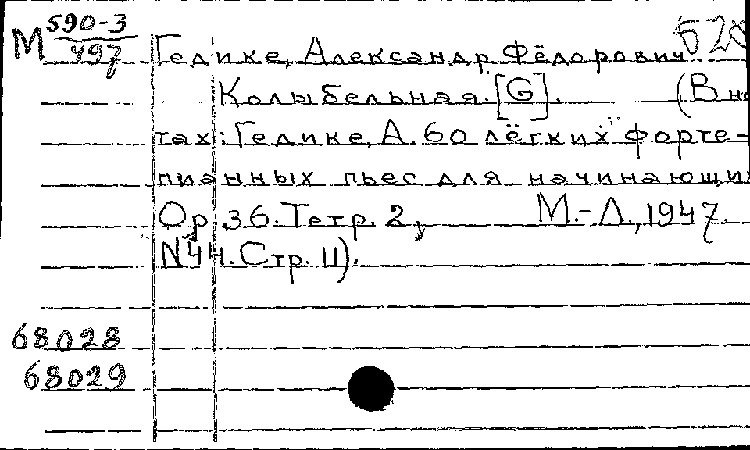 М 590-3
497
Гедике, Александр Фёдорович
Колыбельная. [G]. (В но
тах: Гедике, А. 60 лёгких форте-
пианных пьес для начинающи
Op. 36. Тетр. 2, М.-Л., 1947.
N44. Стр. 11).
68028
68029